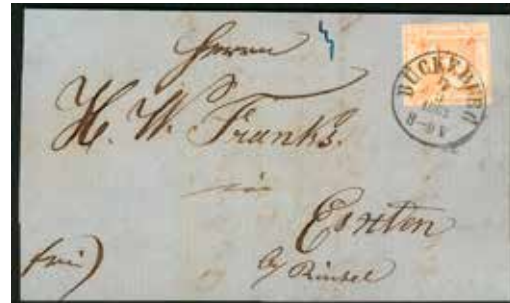 Herrn
H. W. Franke.
in
Exten
by Rinteln
frei)
BÜCKEBURG